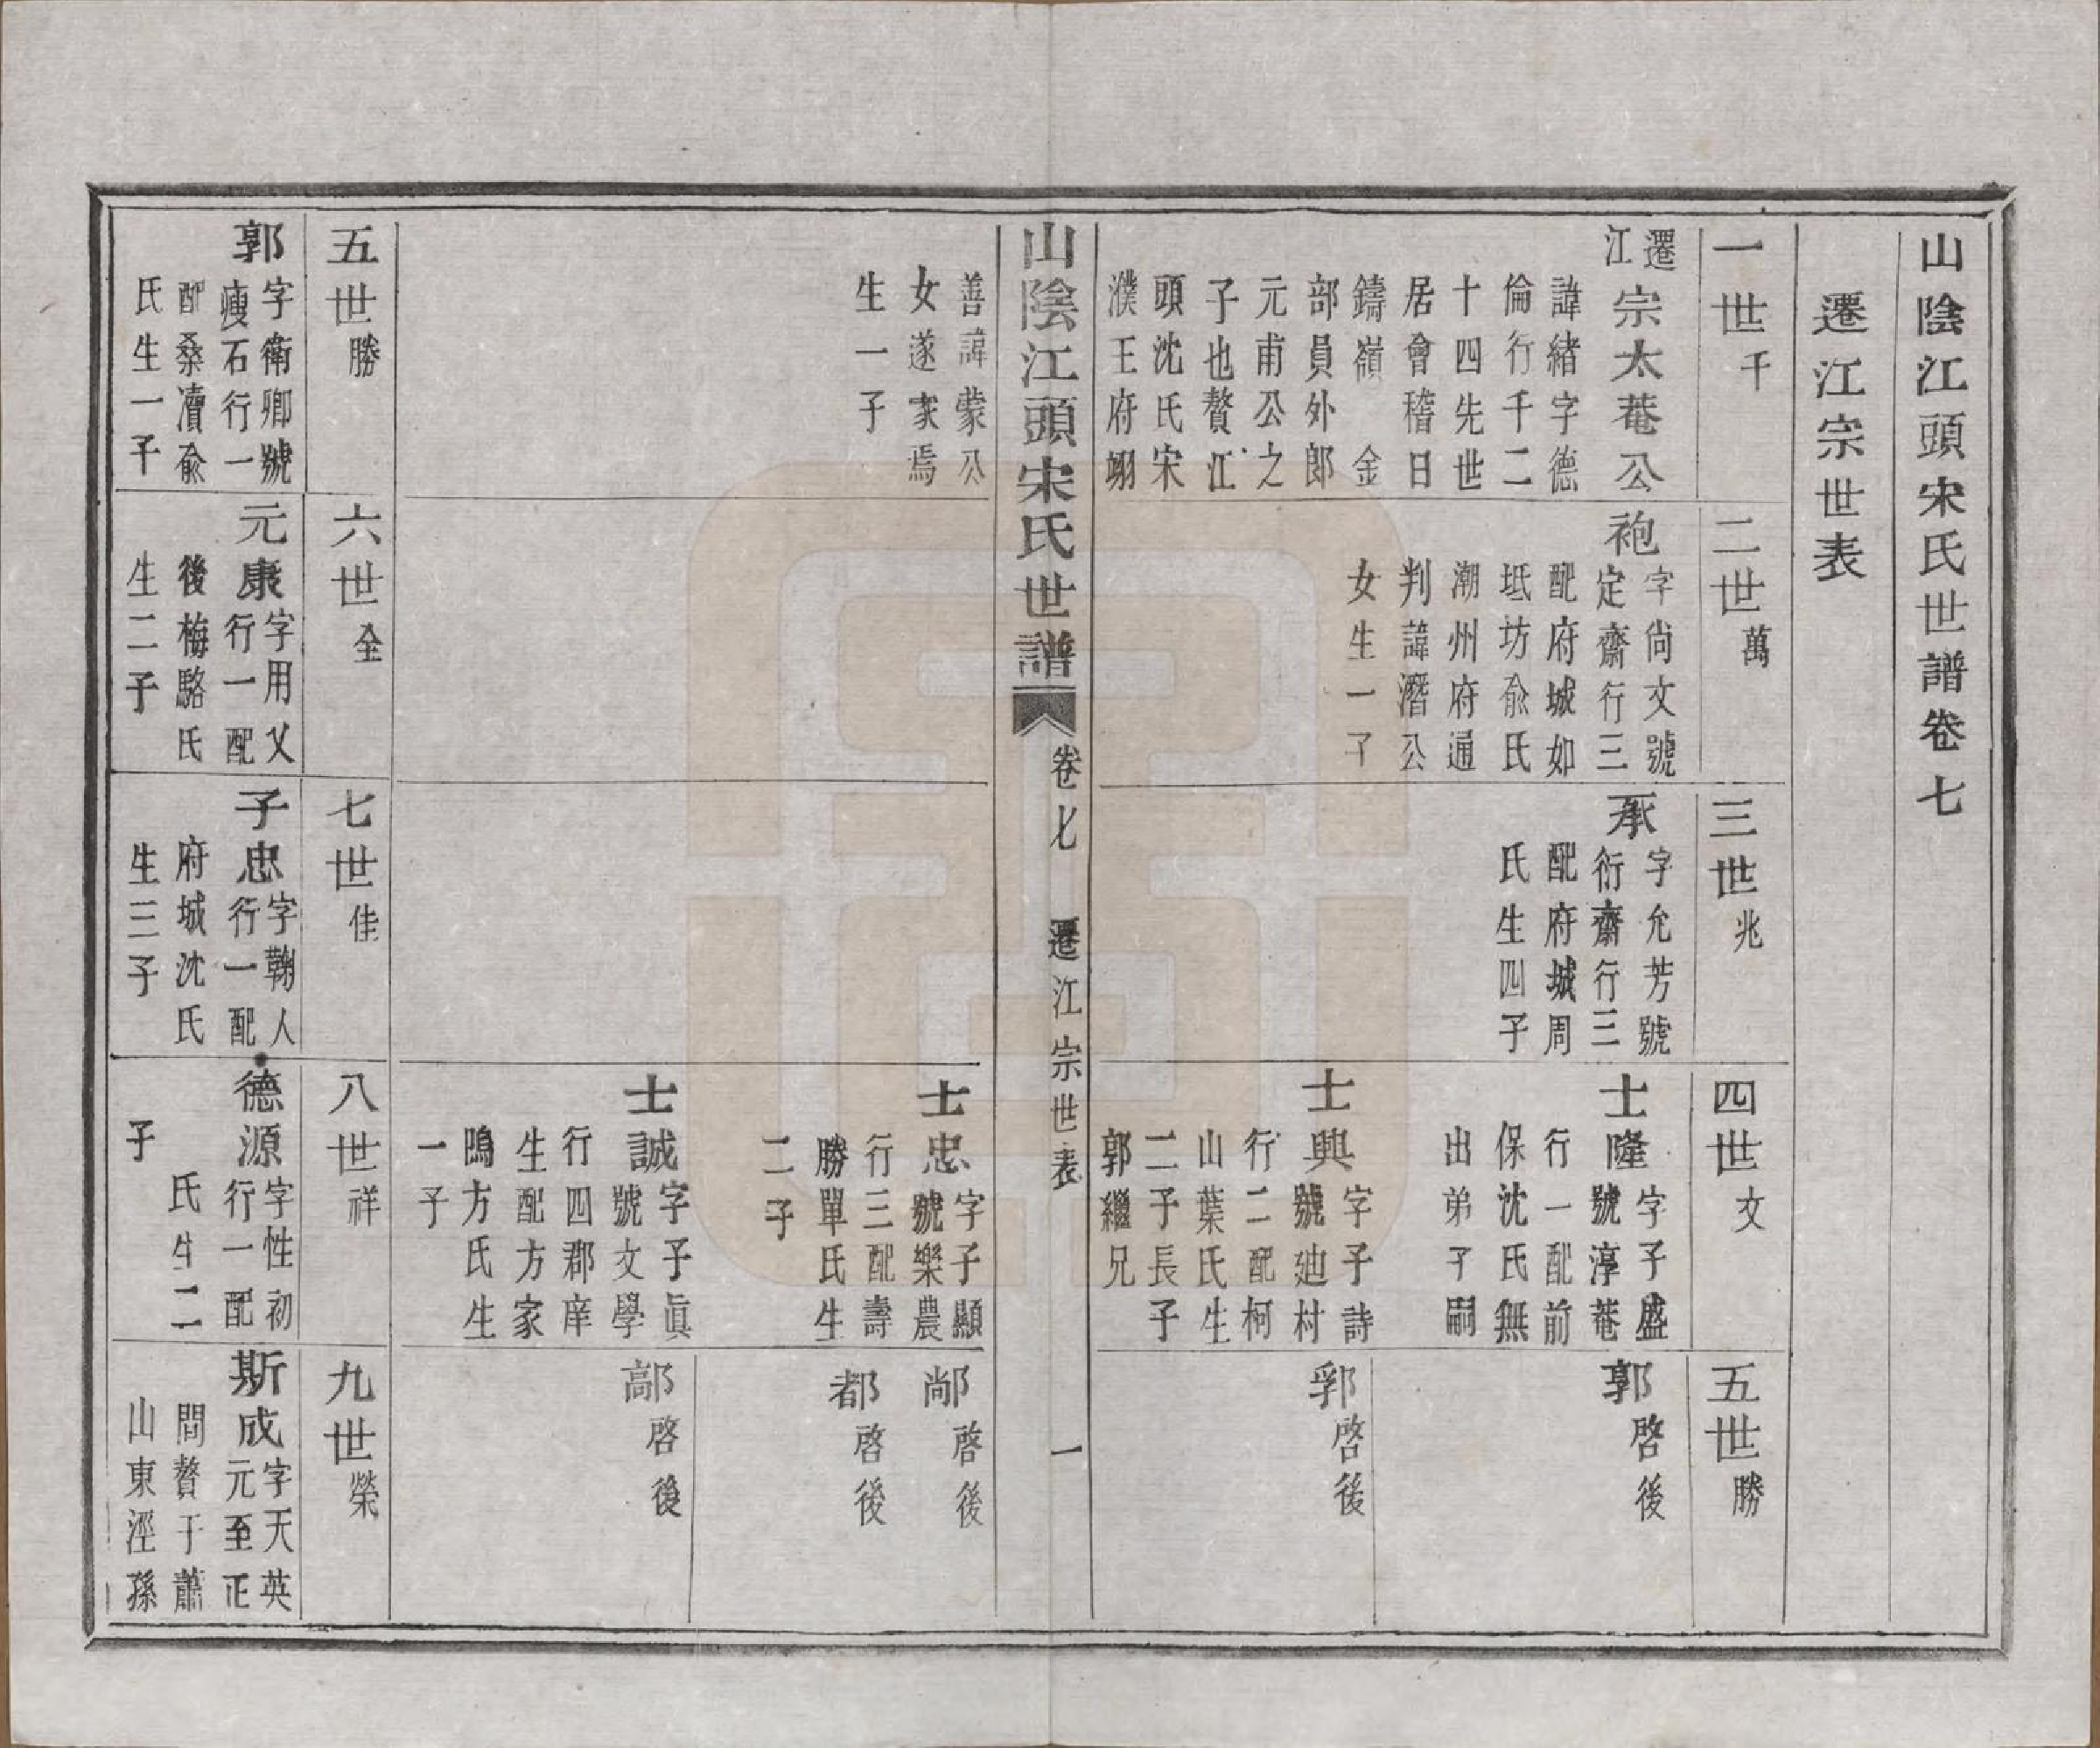 山陰江頭宋氏世譜卷七
遷江宗世表
一世千
遷江宗太菴公
諱緒字德
倫行千二
十四先世
居會稽日
鑄嶺 金
部員外郎
元甫公之
子也贅江
頭沈氏宋
濮王府翊
善諱蒙公
女遂家焉
生一子
二世萬
袍
字尙文號
定齋行三
配府城如
坻坊俞氏
潮州府通
判諱潛公
女生一子
三世兆
承
字允芳號
衍齋行三
配府城周
氏生四子
四世文
士隆
字子盛
號淳菴
行一配前
保沈氏無
出弟子嗣
士興
字子詩
號廸村
行二配柯
山葉氏生
二子長子
郭繼兄
士忠
字子顯
號樂農
行三配壽
勝單氏生
二子
士誠
字子眞
號文學
行四郡庠
生配方家
鴟方氏生
一子
五世勝
郭啓後
郛啓後
鄗啓後
都啓後
鄗啓後
山陰江頭宋氏世譜 卷七 遷江宗世表 一
五世勝
郭
字衛卿號
瘦石行一
配桑瀆俞
氏生一子
六世全
元康
字用乂
行一配
後梅駱氏
生二子
七世佳
子忠
字鞠人
行一配
府城沈氏
生三子
八世祥
德源
字性初
行一配
氏生二
子
九世榮
斯成
字天英
元至正
間贅于蕭
山東湮孫